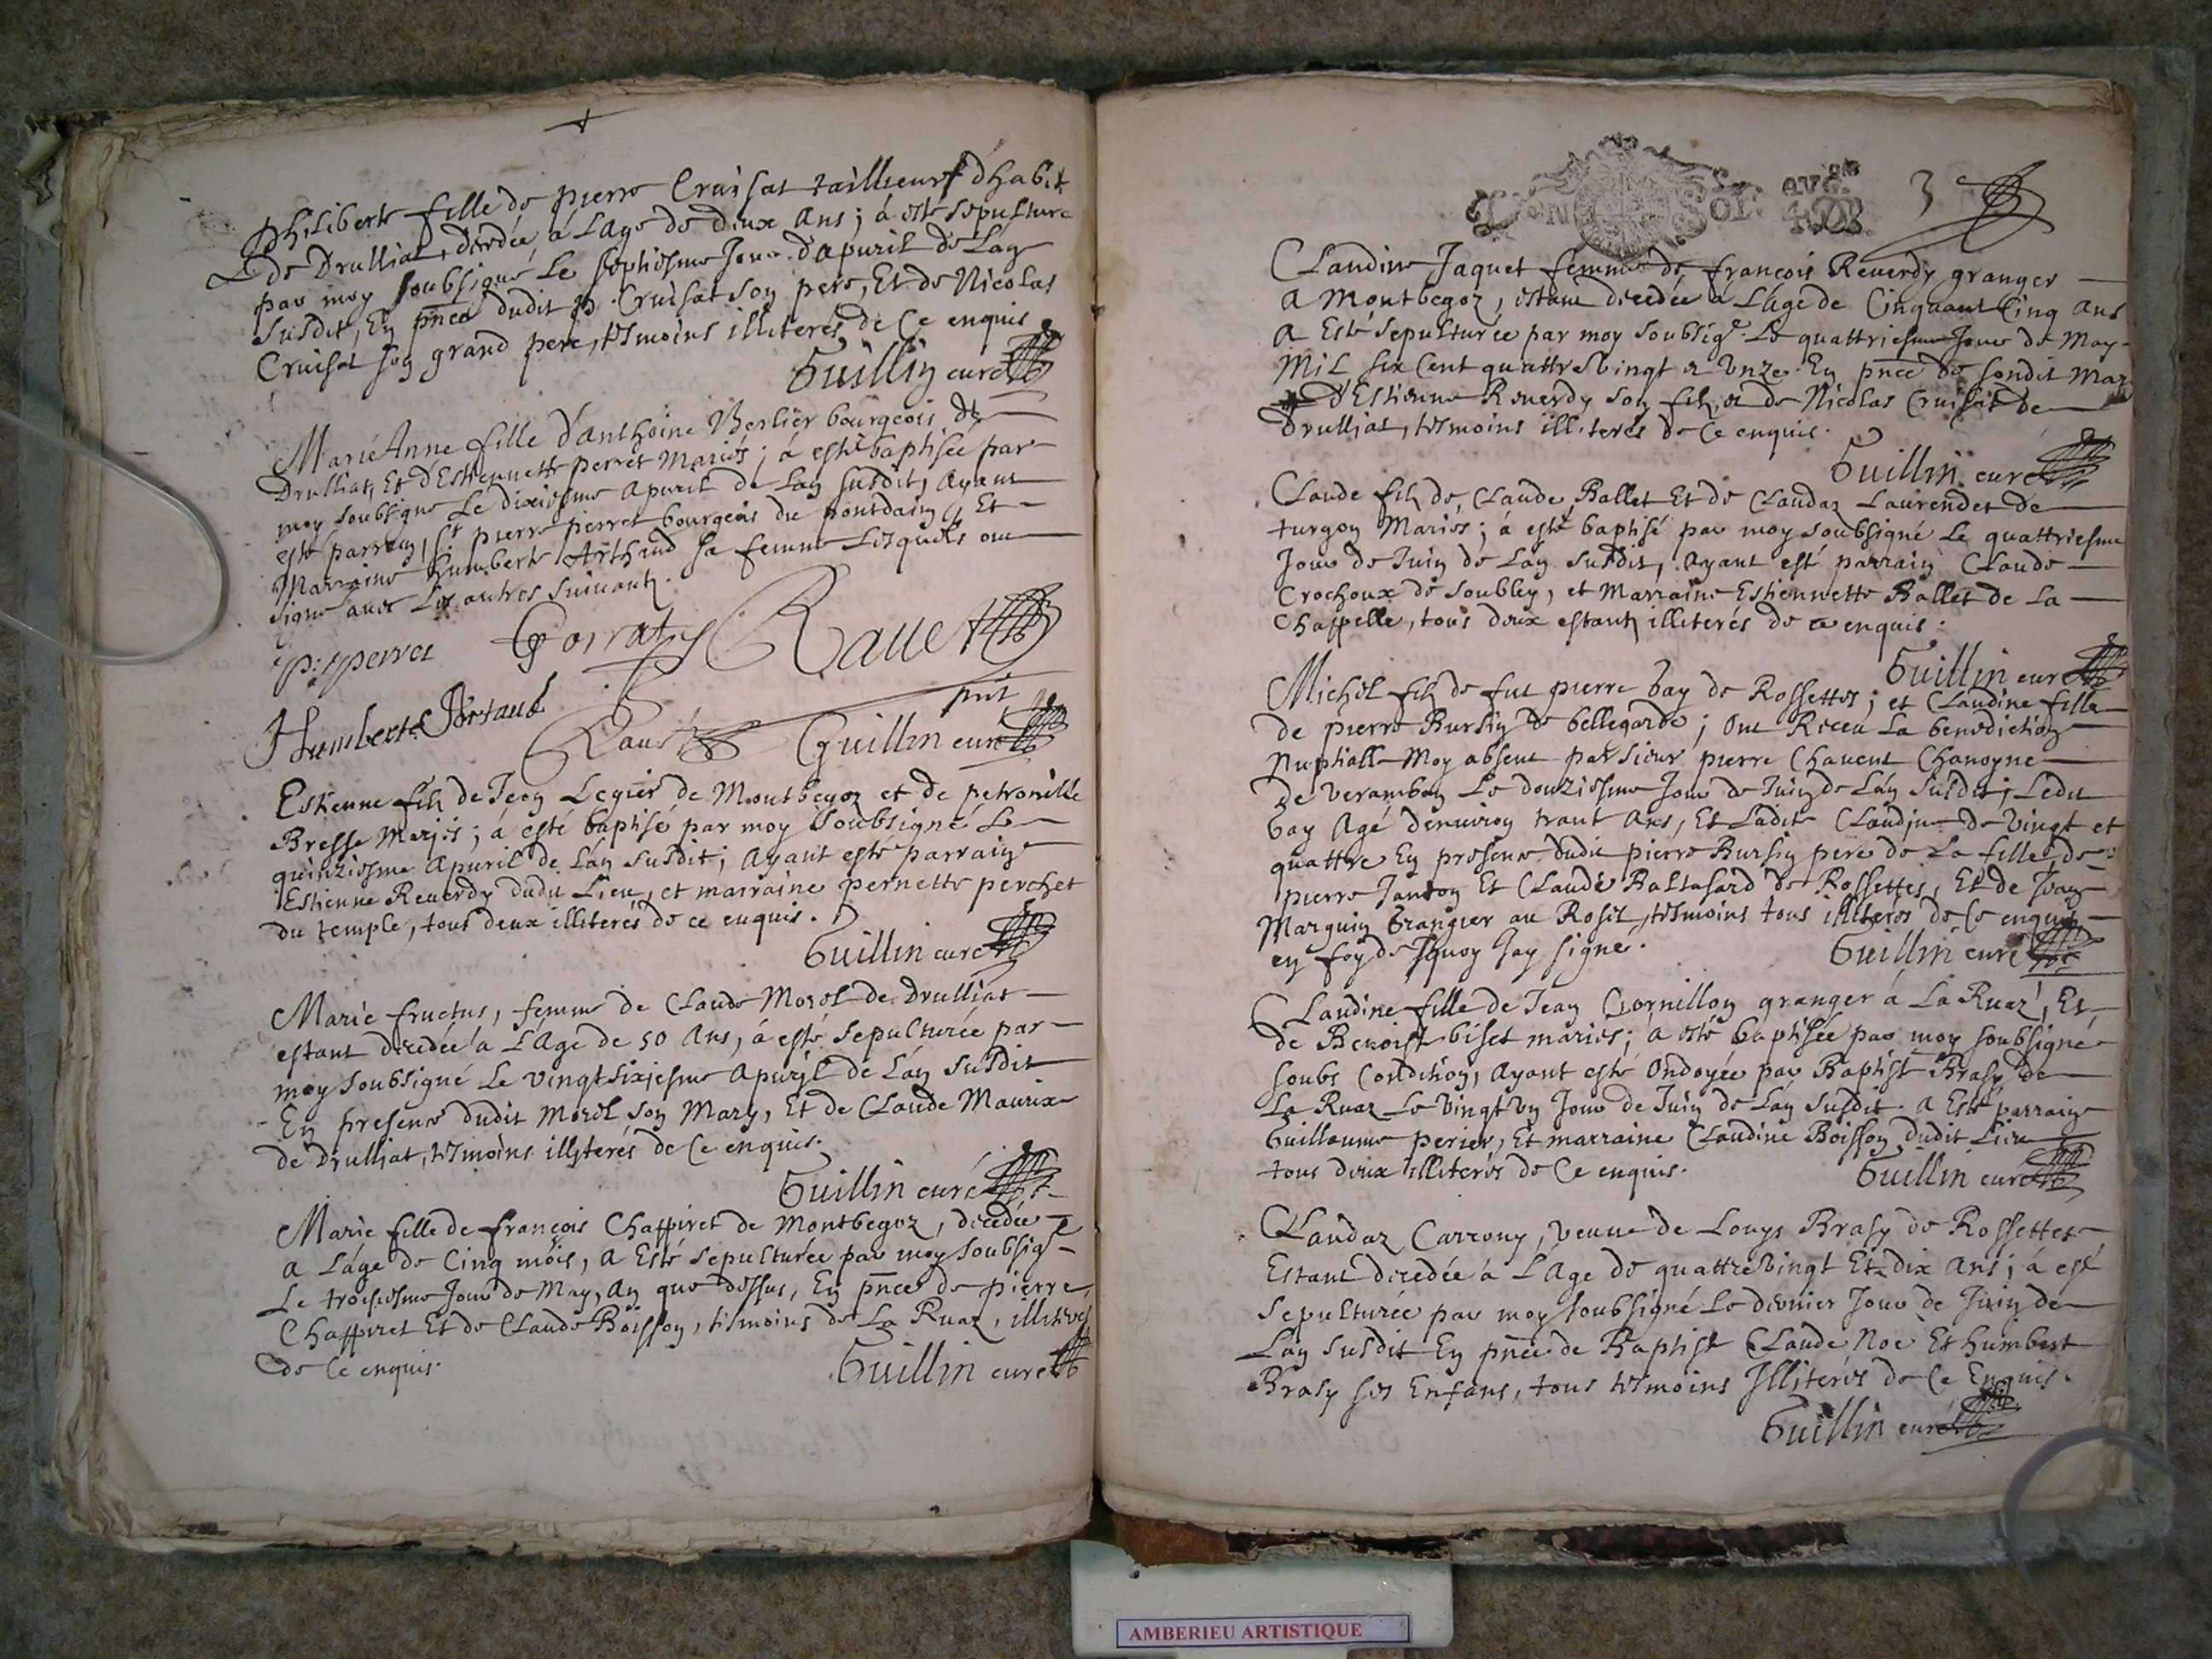 Philiberte fille de pierre Cruisat tailleur d'habit
de Drulliat, decedée à Lage de deux ans; à esté sepulturée
par moy soubsigné Le septiesme Jour d'apuril de Lan
susdit, En pnce dudit p. Cruisat son pere, Et de Nicolas
Cruisat son grand pere, tesmoins illiterés de Ce enquis
Guillin curé
Marie Anne fille d'anthoine Berlier bourgeois de
Drulliat, Et d'Estiennette perret Mariés; à esté baptisée par
moy soubsigné Le dixiesme Apuril de Lan susdit, Ayant
esté parrain, Sr pierre pierret bourgeois du pontdain, Et
Marraine humberte Arthaud sa femme Lesquels ont
signé avec Les autres suivants.
p: perret Gorrat Ravet
Humberte Artaud pnt
Guillin curé
Estienne fils de Jean Legier de Montbegoz et de petronille
Bresse Mariés; à esté baptisé par moy soubsigné Le
quinziesme Apuril de Lan susdit; Ayant esté parrain
Estienne Reverdy dudit Lieu, et marraine pernette perchet
du temple, tous deux illiterés de ce enquis.
Guillin curé
Marie fructus, femme de Claude Morel de Drulliat
estant decedée à L'Age de 50 Ans, à esté sepulturée par
moy soubsigné Le vingt sixiesme Apuril de Lan susdit
En presence dudit Morel son Mary, Et de Claude Maurix
de Drulliat, tesmoins illiterés de Ce enquis.
Guillin curé
Marie fille de françois Chappiret de Montbegoz, decedée
a Láge de Cinq mois, a Esté sepulturée par moy soubsigé
Le troisiesme Jour de May, An que dessus, En pnce de pierre
Chappiret Et de Claude Boisson, tesmoins de La Ruaz, illiterés
de Ce enquis.
Guillin curé
3
Claudine Jaquet femme de françois Reverdy granger
A Montbegoz, estant decedée à L'age de Cinquant Cinq Ans
A Esté sepulturée par moy soubsigé Le quattriesme Jour de May
Mil six Cent quattre vingt et Unze. En pnce de sondit Mary
d'Estienne Reverdy son fils, et de Nicolas Cruisat de
Drulliat, tesmoins illiterés de Ce enquis.
Guillin curé
Claude fils de Claude Ballet Et de Claudaz Laurendet de
turgon Mariés; à esté baptisé par moy soubsigné Le quattriesme
Jour de Juin de Lan susdit, Ayant esté parrain Claude
Crochoux de soubley, et Marraine Estiennette Ballet de La
Chappelle, tous deux estants illiterés de ce enquis.
Guillin curé
Michel fils de fut pierre bay de Rossettes; et Claudine fille
de pierre Bursin de bellegarde; Ont Receu La benediction
Nuptialle Moy absent par sieur pierre Chavent Chanoyne
de Verambon Le douziesme Jour de Juin de Lan susdit; Ledit
bay Agé denviron trant Ans, Et Ladite Claudine de Vingt et
quattre En presence dudit pierre Bursin pere de La fille, de
pierre Janton Et Claude Baltasard de Rossettes, Et de Jean
Marguin Grangier au Rosit, tesmoins tous illiterés de Ce enquis
en foy de quoy Jay signé.
Guillin curé
Claudine fille de Jean Cornillon granger à La Ruaz, Et
de Benoist biset mariés; à esté baptisée par moy soubsigné
soubs Condition, Ayant esté Ondoyée par Baptist Brasy de
La Ruaz Le Vingt Un Jour de Juin de Lan susdit. A Esté parrain
Guillaume perier, Et marraine Claudine Boisson dudit Lieu
tous deux illiterés de Ce enquis.
Guillin curé
Claudaz Carrony, veuve de Louys Brasy de Rossettes
Estant decedée à L'Age de quattre vingt Et dix Ans; à esté
sepulturée par moy soubsigné Le dernier Jour de Juin de
Lan susdit En pnce de Baptist Claude Noe Et humbert
Brasy ses Enfans, tous tesmoins Illiterés de Ce Enquis.
Guillin curé
AMBERIEU ARTISTIQUE